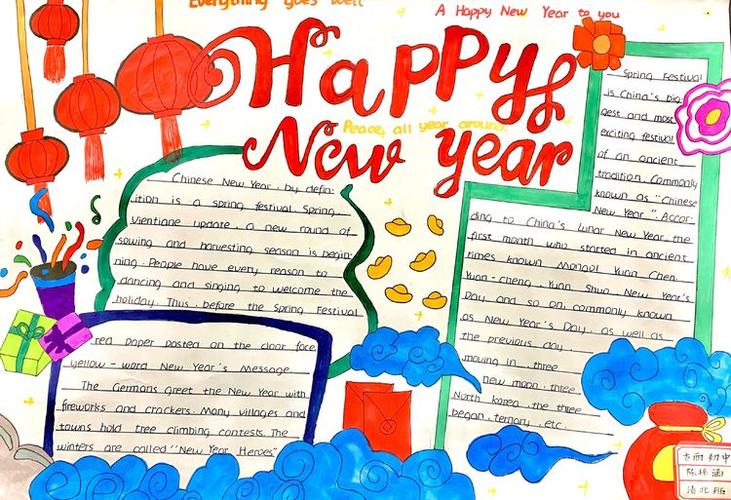 Everything goes well
A Happy New Year to you
Happy
Peace, all year around.
New year
Chinese New Year, by defin-
ition is a spring festival Spring
Vientiane update, a new round of
sowing and harvesting season is begin-
ning. People have every reason to
dancing and singing to welcome the
holiday. Thus, before the Spring Festival
red paper posted on the door face
yellow-word New Year's message.
The Germans greet the New Year with
fireworks and crackers. Many villages and
towns hold tree climbing contests. The
winters are called "New Year Heroes"
Spring Festival
is China's big-
gest and most
exciting festival
of an ancient
tradition. Commonly
known as "Chinese
New Year". Accor-
ding to China's lunar New Year, the
first month who started in ancient
times known Mongol Yuan Chen,
Yuan-cheng, Yuan Shuo New Year's
Day and so on, commonly known
as New Year's Day, as well as
the previous day,
moving in, three
new moon, three
North korea, the three
began, ternary, etc.
初中
陈